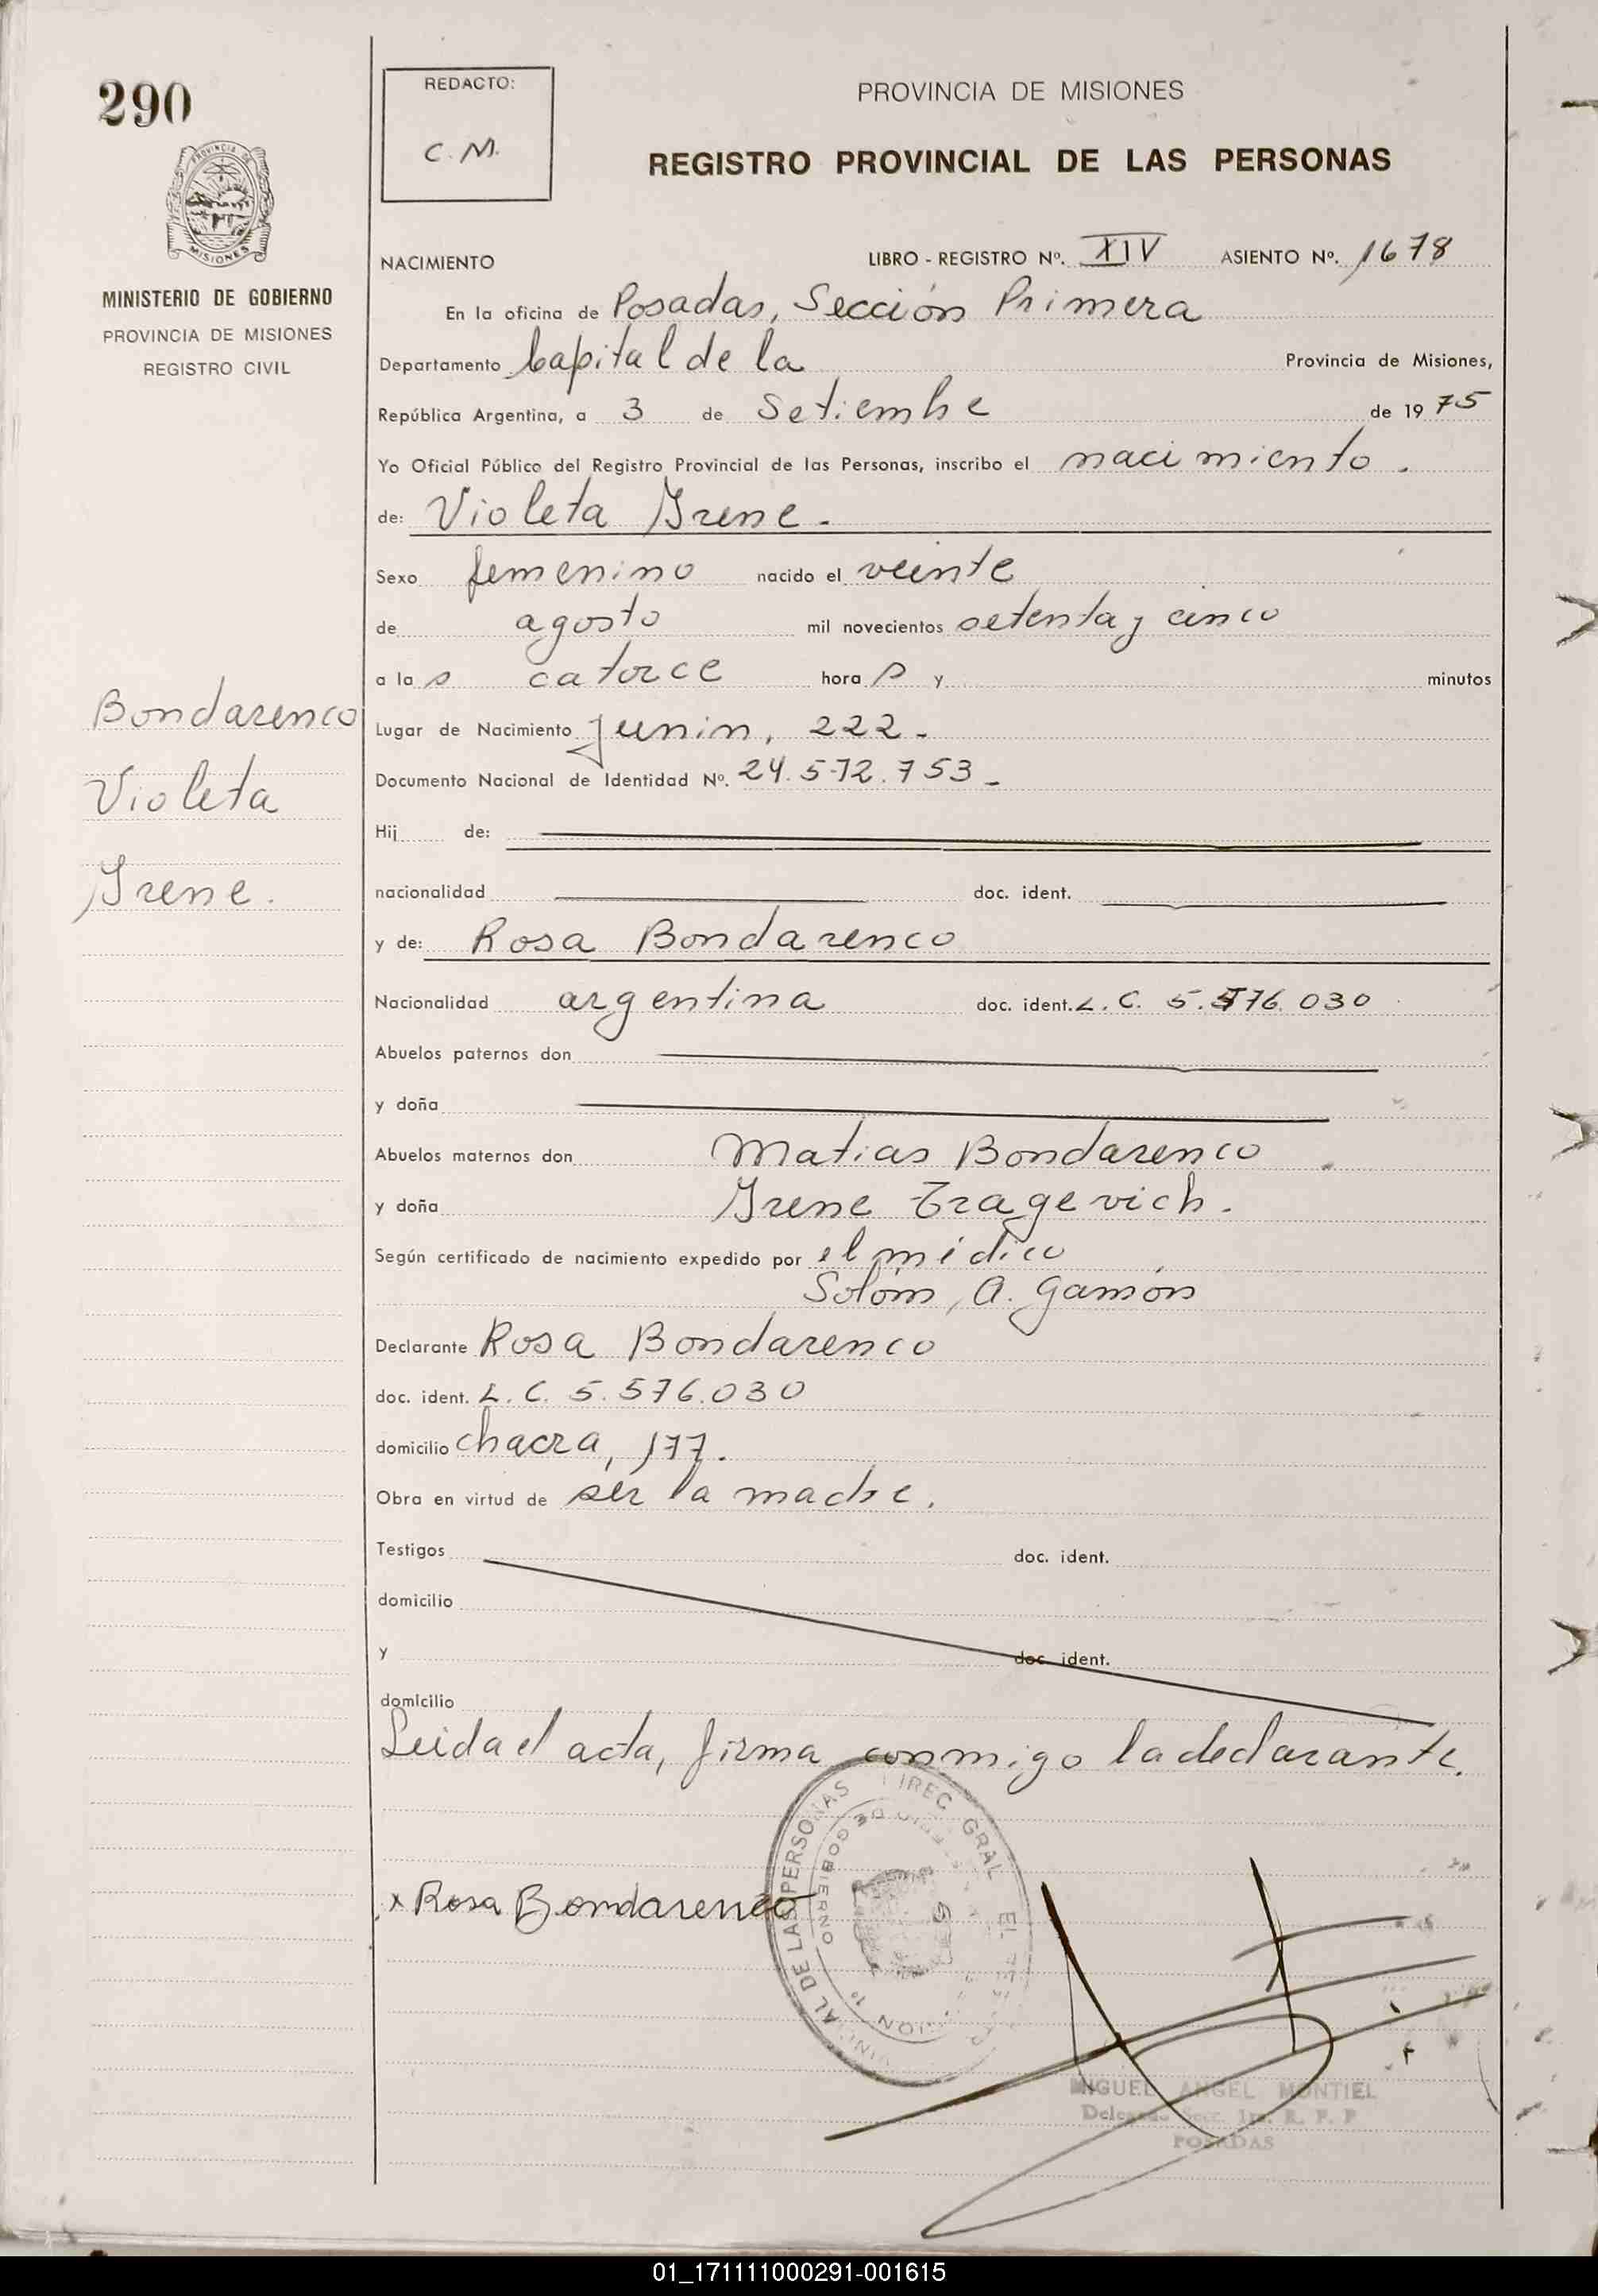 290
REDACTO:
C.M.
PROVINCIA DE MISIONES
REGISTRO PROVINCIAL DE LAS PERSONAS
PROVINCIA DE
MISIONES
MINISTERIO DE GOBIERNO
PROVINCIA DE MISIONES
REGISTRO CIVIL
NACIMIENTO LIBRO - REGISTRO Nº. XIV ASIENTO Nº. 1678
En la oficina de Posadas, Sección Primera
Departamento Capital de la Provincia de Misiones,
República Argentina, a 3 de Setiembre de 1975
Yo Oficial Público del Registro Provincial de las Personas, inscribo el nacimiento.
de: Violeta Irene.
Sexo femenino nacido el veinte
de agosto mil novecientos setenta y cinco
a las catorce horas y minutos
Bondarenco
Violeta
Irene.
Lugar de Nacimiento Junin, 222.
Documento Nacional de Identidad Nº. 24.572.753
Hij de:
nacionalidad doc. ident.
y de: Rosa Bondarenco
Nacionalidad argentina doc. ident. L.C. 5.576.030
Abuelos paternos don
y doña
Abuelos maternos don Matias Bondarenco
y doña Irene Tragevich.
Según certificado de nacimiento expedido por el médico
Solóm, A. Gamón
Declarante Rosa Bondarenco
doc. ident. L.C. 5.576.030
domicilio chacra, 177.
Obra en virtud de ser la madre.
Testigos doc. ident.
domicilio
y doc. ident.
domicilio
Leida el acta, firma conmigo la declarante.
x Rosa Bondarenco
AL DE LAS PERSONAS DIREC. GRAL
DE GOBIERNO
MIGUEL ANGEL MONTIEL
Delegado Secc. 1ra. R. P. P.
POSADAS
01_171111000291-001615